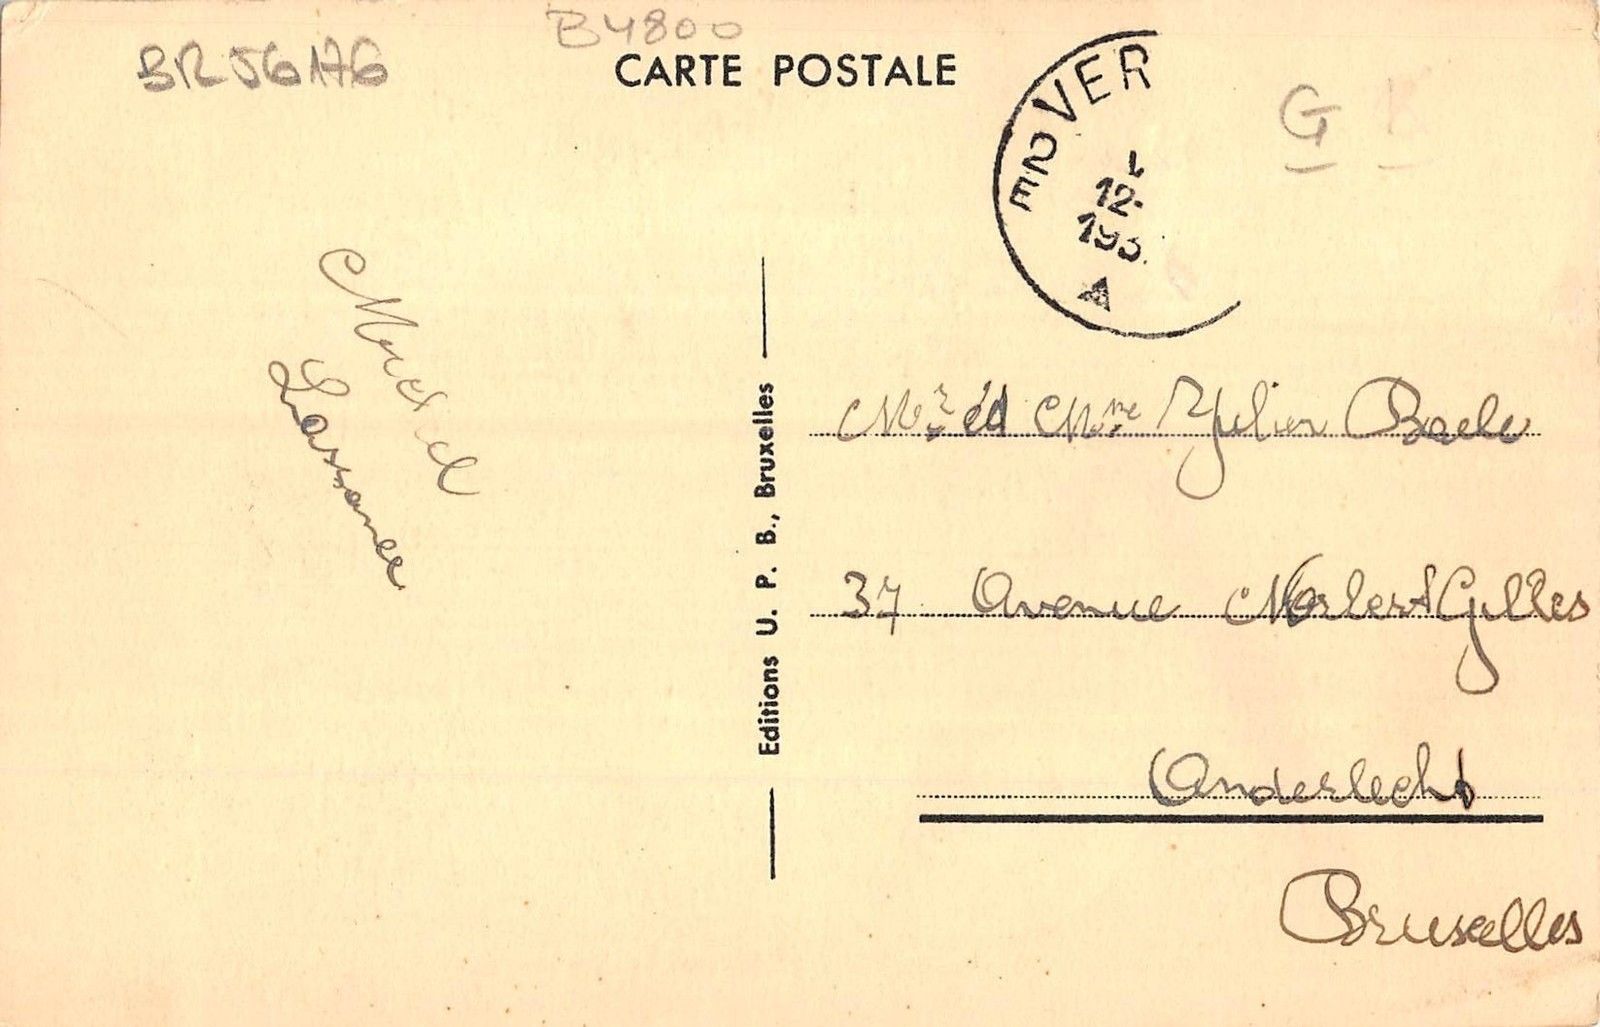 B4800
BR56176
CARTE POSTALE
G K
EDVER
12.
193
Marcel
Editions U. P. B., Bruxelles
Mr et Mme Julien Baele
37 Avenue Norbert Gilles
Anderlecht
Bruxelles